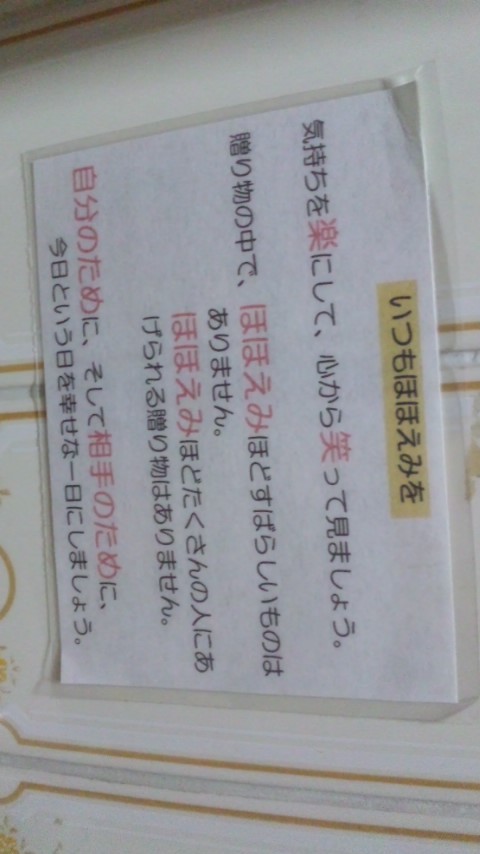 いつもほほえみを
気持ちを楽にして、心から笑って見ましょう。
贈り物の中で、ほほえみほどすばらしいものは
ありません。
ほほえみほどたくさんの人にあ
げられる贈り物はありません。
自分のために、そして相手のために、
今日という日を幸せな一日にしましょう。